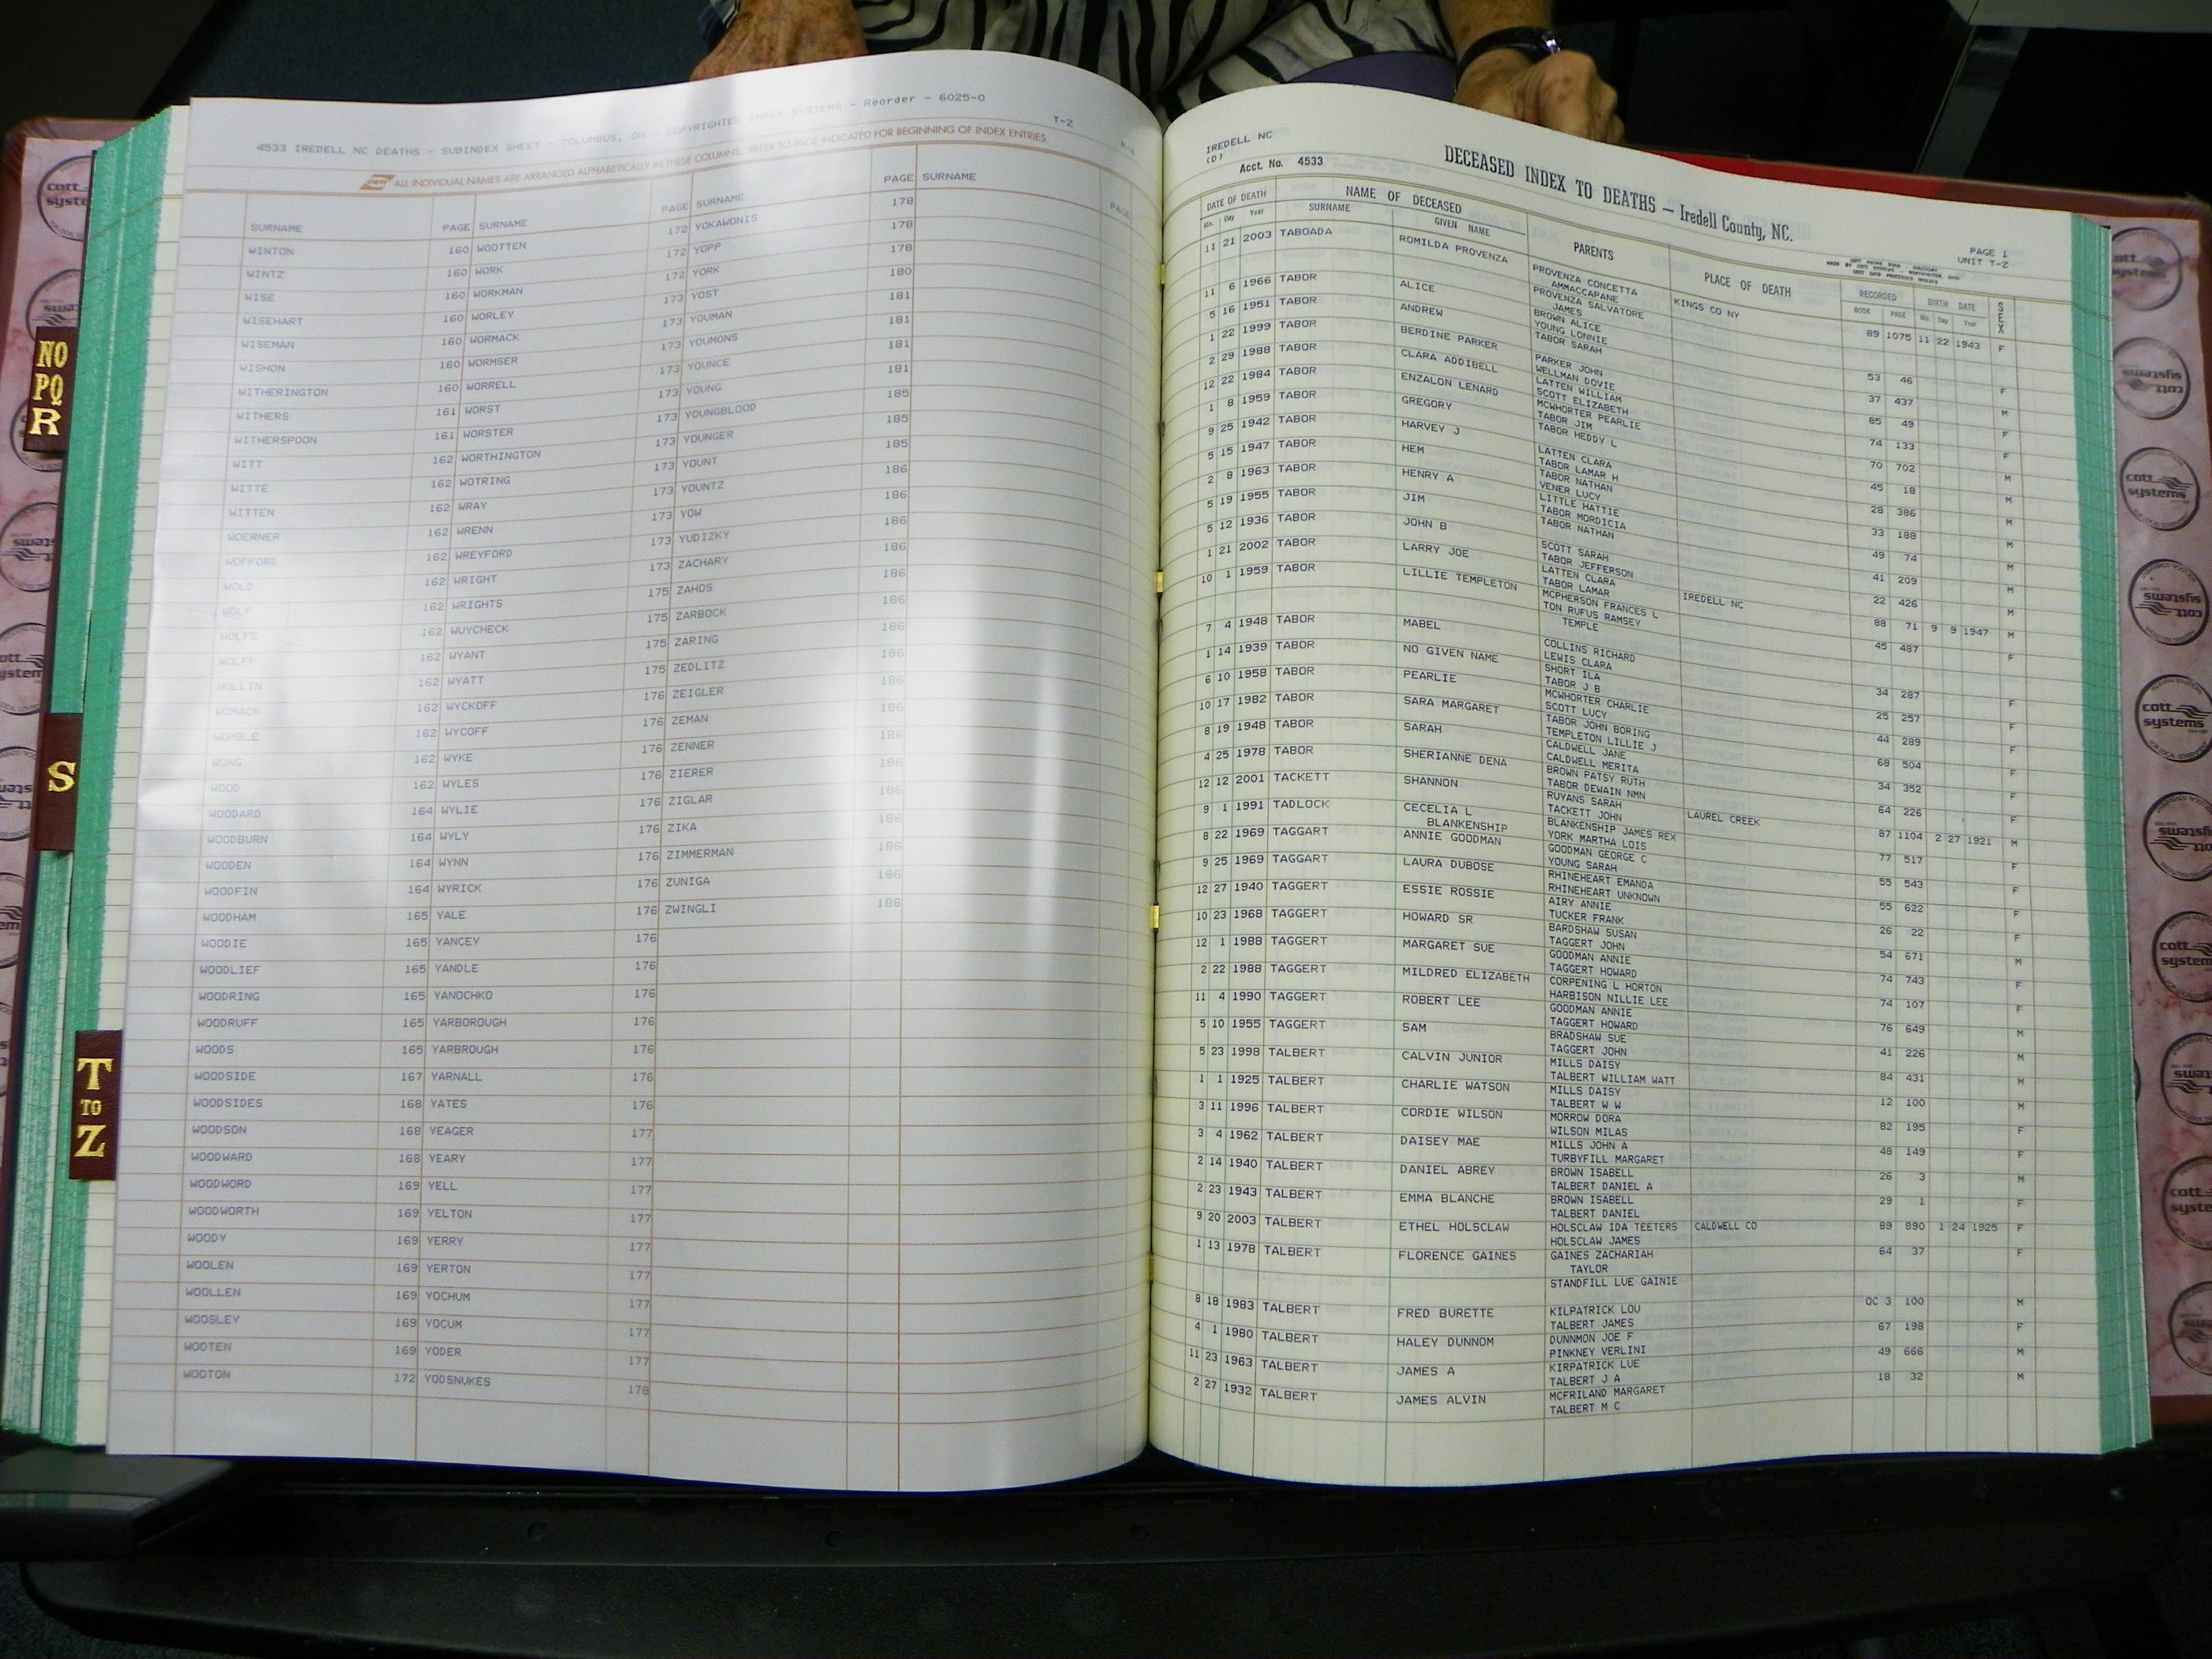 4533 IREDELL NC DEATHS - SUBINDEX SHEET - COLUMBUS, OH - COPYRIGHTED INDEX SYSTEMS - Reorder - 6025-0
T-Z
ALL INDIVIDUAL NAMES ARE ARRANGED ALPHABETICALLY IN THESE COLUMNS. REFER TO PAGE INDICATED FOR BEGINNING OF INDEX ENTRIES.
SURNAME PAGE SURNAME PAGE SURNAME PAGE SURNAME PAGE
WINTON 160 WOOTTEN 172 YOKAWONIS 178
WINTZ 160 WORK 172 YOPP 178
WISE 160 WORKMAN 172 YORK 178
WISEHART 160 WORLEY 173 YOST 180
WISEMAN 160 WORMACK 173 YOUMAN 181
WISHON 160 WORMSER 173 YOUMONS 181
WITHERINGTON 160 WORRELL 173 YOUNCE 181
WITHERS 161 WORST 173 YOUNG 181
WITHERSPOON 161 WORSTER 173 YOUNGBLOOD 185
WITT 162 WORTHINGTON 173 YOUNGER 185
WITTE 162 WOTRING 173 YOUNT 185
WITTEN 162 WRAY 173 YOUNTZ 186
WOERNER 162 WRENN 173 YOW 186
WOFFORD 162 WREYFORD 173 YUDIZKY 186
WOLD 162 WRIGHT 173 ZACHARY 186
WOLF 162 WRIGHTS 175 ZAHOS 186
WOLFE 162 WUYCHECK 175 ZARBOCK 186
WOLFF 162 WYANT 175 ZARING 186
WOLLIN 162 WYATT 175 ZEDLITZ 186
WOMACK 162 WYCKOFF 176 ZEIGLER 186
WOMBLE 162 WYCOFF 176 ZEMAN 186
WONG 162 WYKE 176 ZENNER 186
WOOD 162 WYLES 176 ZIERER 186
WOODARD 164 WYLIE 176 ZIGLAR 186
WOODBURN 164 WYLY 176 ZIKA 186
WOODEN 164 WYNN 176 ZIMMERMAN 186
WOODFIN 164 WYRICK 176 ZUNIGA 186
WOODHAM 165 YALE 176 ZWINGLI 186
WOODIE 165 YANCEY 176
WOODLIEF 165 YANDLE 176
WOODRING 165 YANOCHKO 176
WOODRUFF 165 YARBOROUGH 176
WOODS 165 YARBROUGH 176
WOODSIDE 167 YARNALL 176
WOODSIDES 168 YATES 176
WOODSON 168 YEAGER 177
WOODWARD 168 YEARY 177
WOODWORD 169 YELL 177
WOODWORTH 169 YELTON 177
WOODY 169 YERRY 177
WOOLEN 169 YERTON 177
WOOLLEN 169 YOCHUM 177
WOOSLEY 169 YOCUM 177
WOOTEN 169 YODER 177
WOOTON 172 YODSNUKES 178
IREDELL NC
(D)
Acct. No. 4533
DECEASED INDEX TO DEATHS — Iredell County, NC.
PAGE 1
UNIT T-Z
DATE OF DEATH NAME OF DECEASED PARENTS PLACE OF DEATH RECORDED BIRTH DATE SEX
Mo. Day Year SURNAME GIVEN NAME BOOK PAGE Mo. Day Year
11 21 2003 TABOADA ROMILDA PROVENZA PROVENZA CONCETTA KINGS CO NY 89 1075 11 22 1943 F
AMMACCAPANE
PROVENZA SALVATORE
JAMES
11 6 1966 TABOR ALICE BROWN ALICE 53 46 F
YOUNG LONNIE
5 16 1951 TABOR ANDREW TABOR SARAH 37 437 M
1 22 1999 TABOR BERDINE PARKER PARKER JOHN 85 49 F
WELLMAN DOVIE
2 29 1988 TABOR CLARA ADDIBELL LATTEN WILLIAM 74 133 F
SCOTT ELIZABETH
12 22 1984 TABOR ENZALON LENARD MCWHORTER PEARLIE 70 702 M
TABOR JIM
1 8 1959 TABOR GREGORY TABOR HEDDY L 45 18 M
9 25 1942 TABOR HARVEY J LATTEN CLARA 28 386 M
TABOR LAMAR H
5 15 1947 TABOR HEM TABOR NATHAN 33 188 M
VENER LUCY
2 8 1963 TABOR HENRY A LITTLE HATTIE 49 74 M
TABOR MORDICIA
5 19 1955 TABOR JIM TABOR NATHAN 41 209 M
SCOTT SARAH
5 12 1936 TABOR JOHN B TABOR JEFFERSON 22 426 M
LATTEN CLARA
TABOR LAMAR
1 21 2002 TABOR LARRY JOE MCPHERSON FRANCES L IREDELL NC 88 71 9 9 1947 M
10 1 1959 TABOR LILLIE TEMPLETON TON RUFUS RAMSEY 45 487 F
TEMPLE
7 4 1948 TABOR MABEL COLLINS RICHARD 34 287 F
LEWIS CLARA
1 14 1939 TABOR NO GIVEN NAME SHORT ILA 25 257 F
TABOR J B
6 10 1958 TABOR PEARLIE MCWHORTER CHARLIE 44 289 F
SCOTT LUCY
10 17 1982 TABOR SARA MARGARET TABOR JOHN BORING 68 504 F
TEMPLETON LILLIE J
8 19 1948 TABOR SARAH CALDWELL JANE 34 352 F
CALDWELL MERITA
4 25 1978 TABOR SHERIANNE DENA BROWN PATSY RUTH 64 226 F
TABOR DEWAIN NMN
12 12 2001 TACKETT SHANNON RUYANS SARAH LAUREL CREEK 87 1104 2 27 1921 M
TACKETT JOHN
9 1 1991 TADLOCK CECELIA L BLANKENSHIP JAMES REX 77 517 F
BLANKENSHIP YORK MARTHA LOIS
8 22 1969 TAGGART ANNIE GOODMAN GOODMAN GEORGE C 55 543 F
YOUNG SARAH
9 25 1969 TAGGART LAURA DUBOSE RHINEHEART EMANDA 55 622 F
RHINEHEART UNKNOWN
12 27 1940 TAGGERT ESSIE ROSSIE AIRY ANNIE 26 22 F
TUCKER FRANK
10 23 1968 TAGGERT HOWARD SR BARDSHAW SUSAN 54 671 M
TAGGERT JOHN
12 1 1988 TAGGERT MARGARET SUE GOODMAN ANNIE 74 743 F
TAGGERT HOWARD
2 22 1988 TAGGERT MILDRED ELIZABETH CORPENING L HORTON 74 107 F
HARBISON NILLIE LEE
11 4 1990 TAGGERT ROBERT LEE GOODMAN ANNIE 76 649 M
TAGGERT HOWARD
5 10 1955 TAGGERT SAM BRADSHAW SUE 41 226 M
TAGGERT JOHN
5 23 1998 TALBERT CALVIN JUNIOR MILLS DAISY 84 431 M
TALBERT WILLIAM WATT
1 1 1925 TALBERT CHARLIE WATSON MILLS DAISY 12 100 M
TALBERT W W
3 11 1996 TALBERT CORDIE WILSON MORROW DORA 82 195 F
WILSON MILAS
3 4 1962 TALBERT DAISEY MAE MILLS JOHN A 48 149 F
TURBYFILL MARGARET
2 14 1940 TALBERT DANIEL ABREY BROWN ISABELL 26 3 M
TALBERT DANIEL A
2 23 1943 TALBERT EMMA BLANCHE BROWN ISABELL 29 1 F
TALBERT DANIEL
9 20 2003 TALBERT ETHEL HOLSCLAW HOLSCLAW IDA TEETERS CALDWELL CO 89 890 1 24 1925 F
HOLSCLAW JAMES
1 13 1978 TALBERT FLORENCE GAINES GAINES ZACHARIAH 64 37 F
TAYLOR
STANDFILL LUE GAINIE
8 18 1983 TALBERT FRED BURETTE KILPATRICK LOU OC 3 100 M
TALBERT JAMES
4 1 1980 TALBERT HALEY DUNNOM DUNNMON JOE F 67 198 F
PINKNEY VERLINI
11 23 1963 TALBERT JAMES A KIRPATRICK LUE 49 666 M
TALBERT J A
2 27 1932 TALBERT JAMES ALVIN MCFRILAND MARGARET 18 32 M
TALBERT M C
NO
PQ
R
S
T
TO
Z
cott
systems